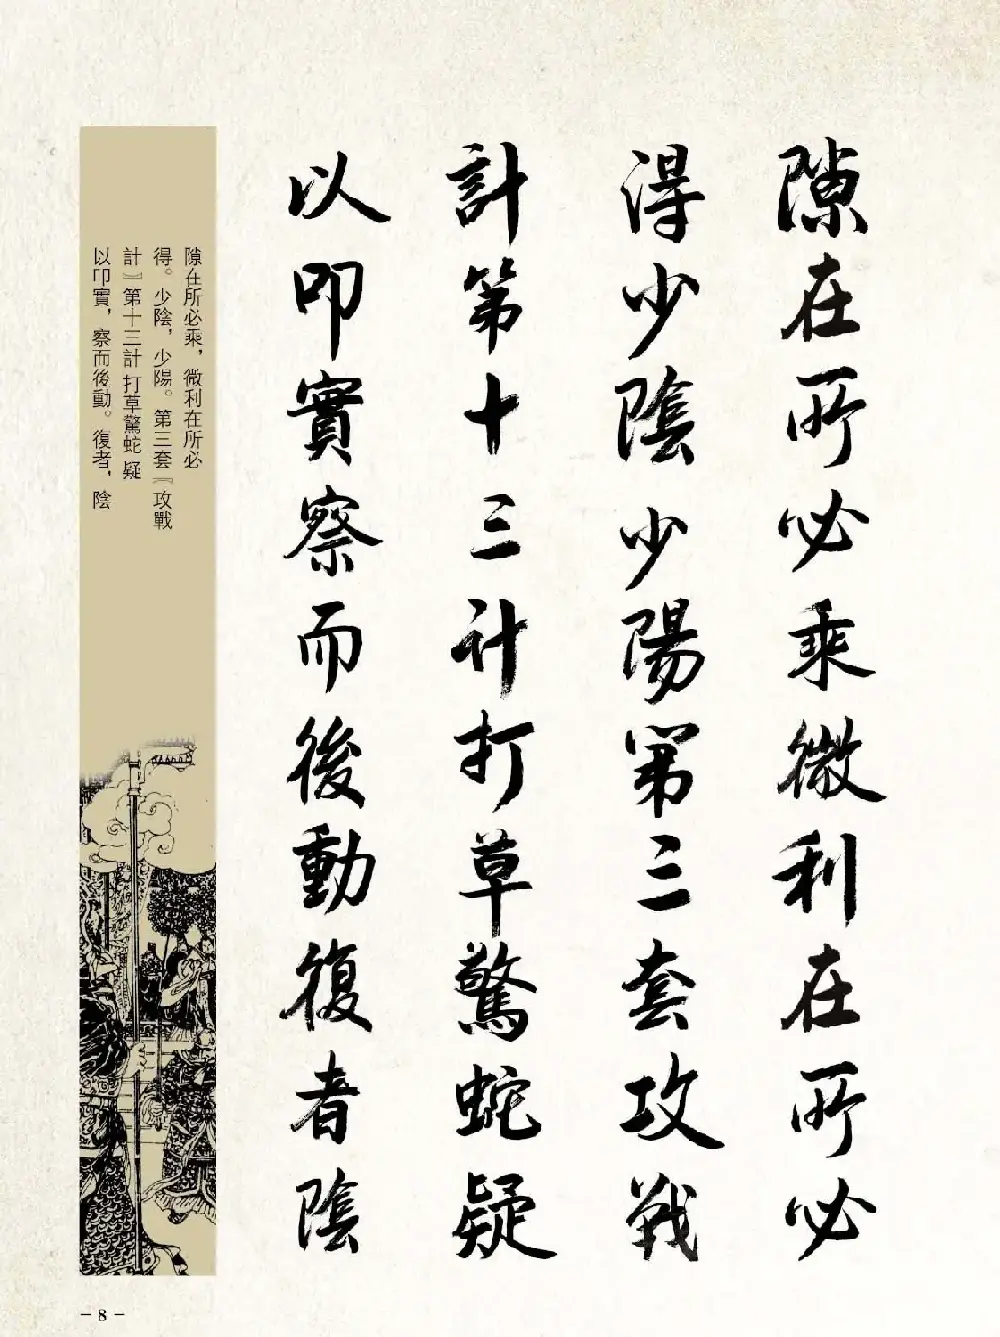 隙在所必乘微利在所必
得少陰少陽第三套攻戰
計第十三計打草驚蛇疑
以叩實察而後動復者陰
隙在所必乘，微利在所必
得。少陰，少陽。第三套『攻戰
計』第十三計 打草驚蛇 疑
以叩實，察而後動。復者，陰
- 8 -